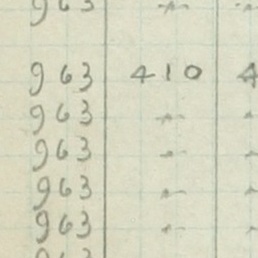 963 "
963 410 4
963 " "
963 " "
963 " "
963 " "
963